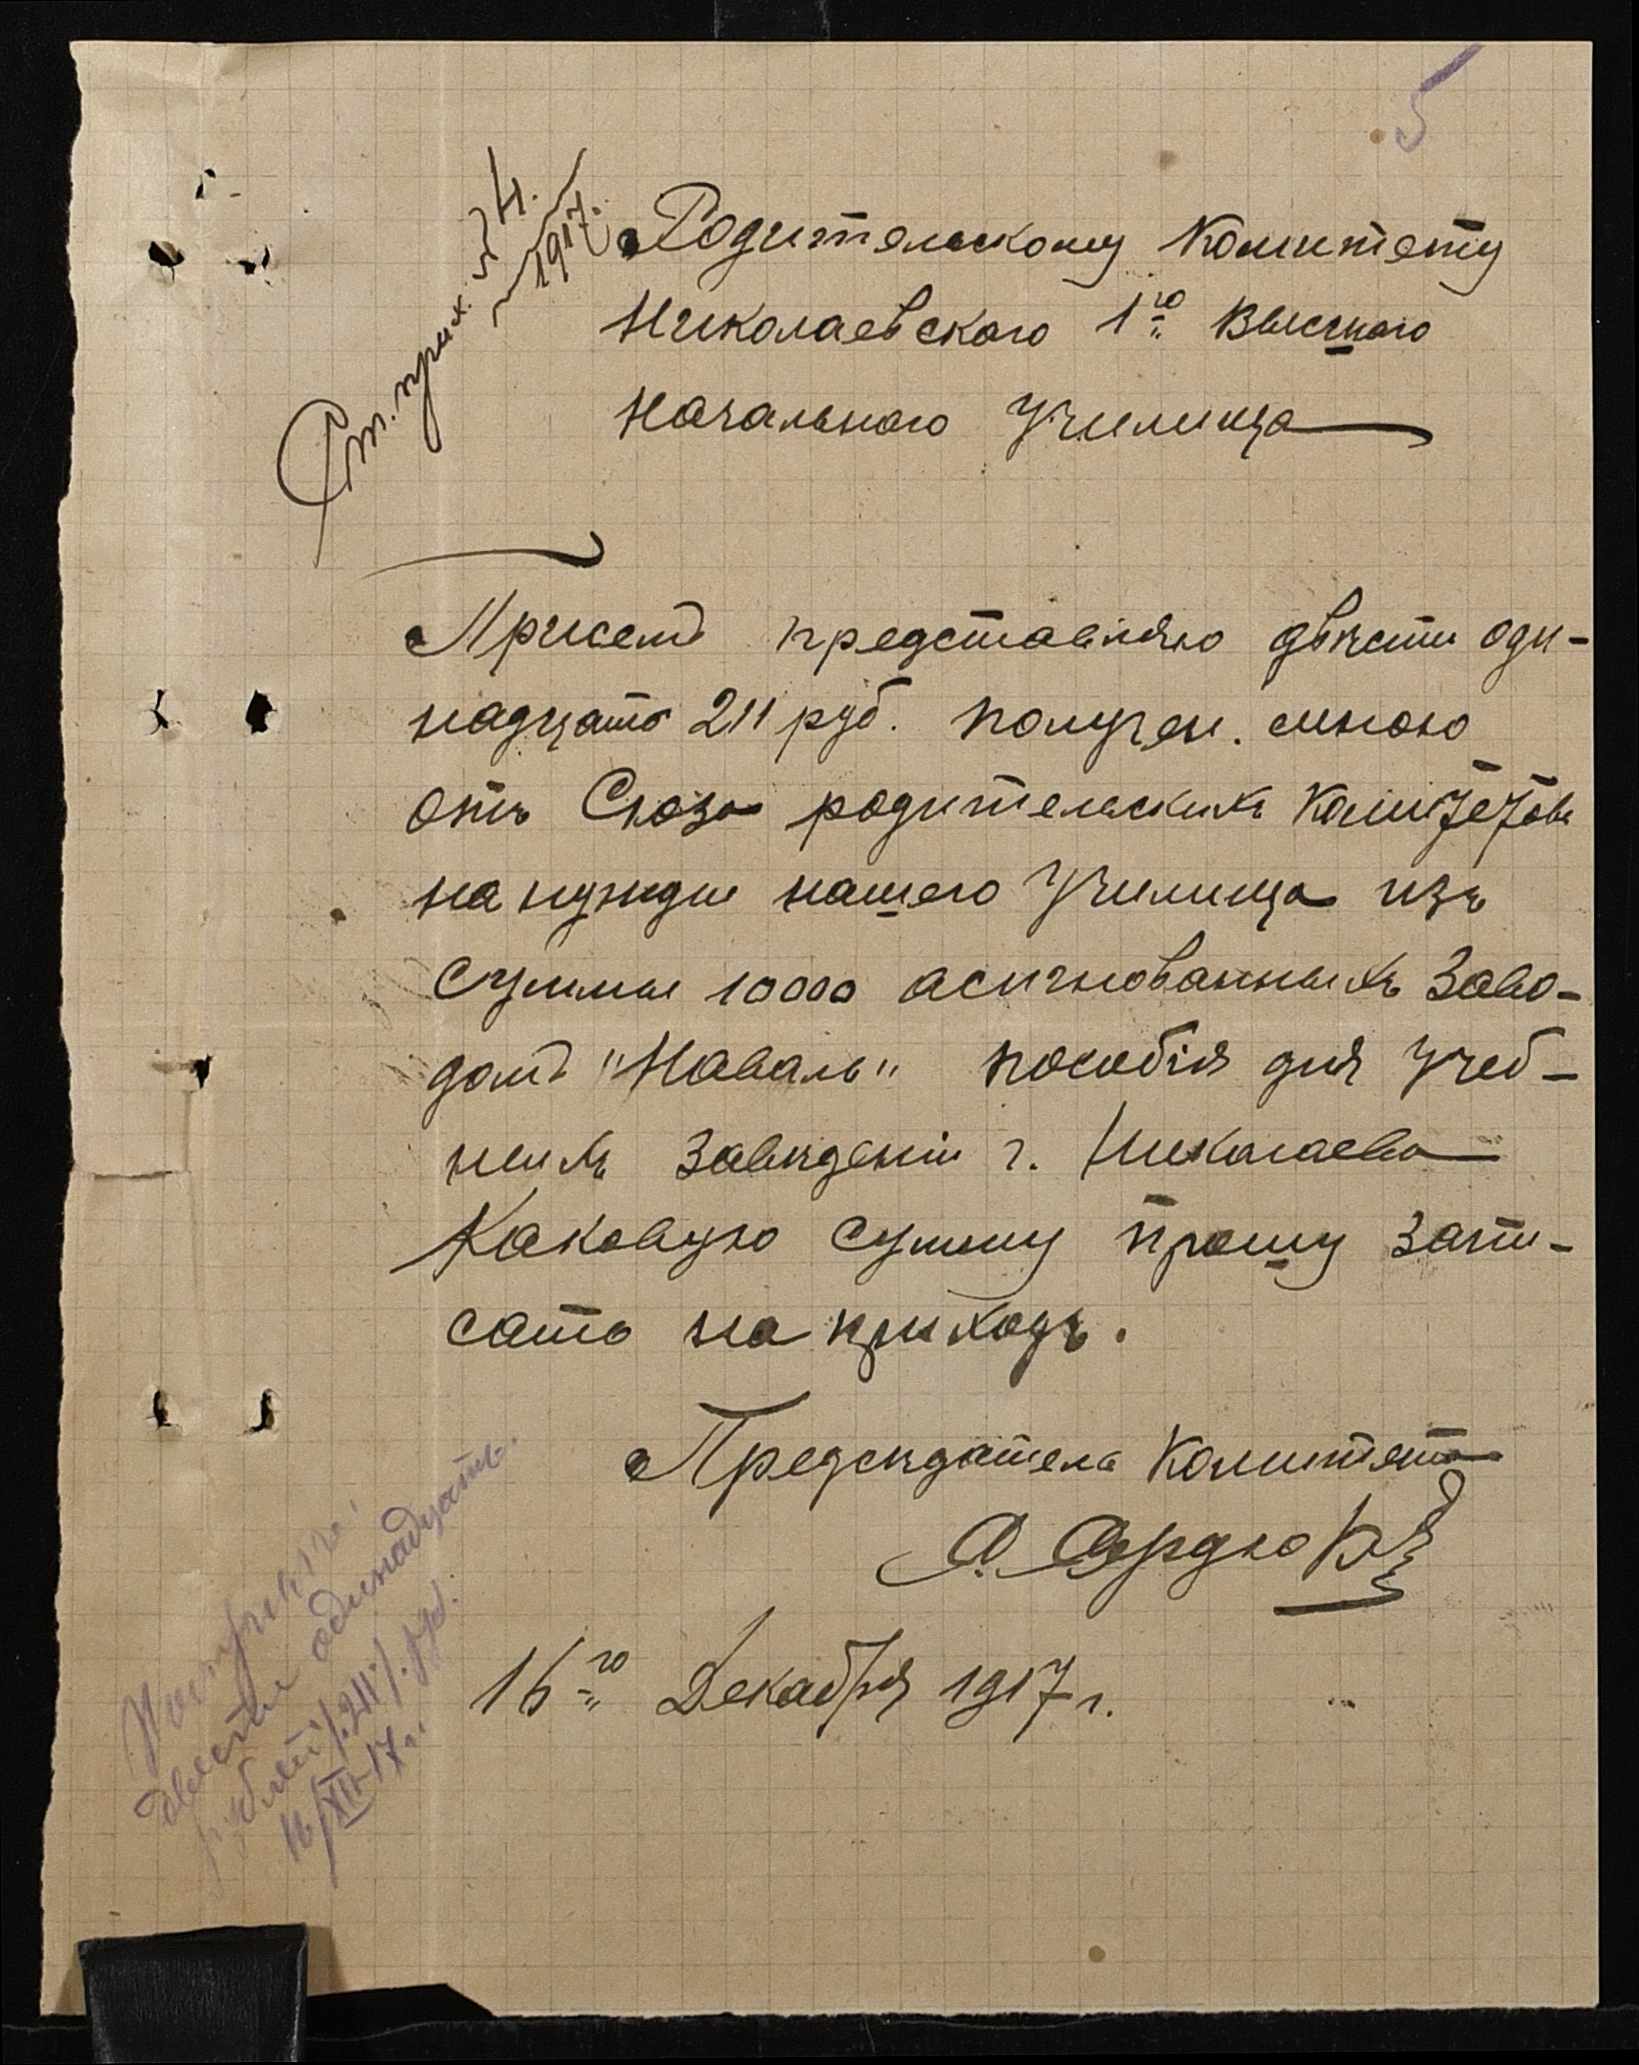 5
Ст. прих. № 4.
1917.
Родительскому Комитету
Николаевского 1го Высшаго
Начальнаго Училища
Присемъ представляю двѣсти оди-
надцать 211 руб. получен. мною
отъ Союза родительскихъ Комитетовъ
на нужды нашего Училища изъ
Суммы 10000 асигнованныхъ Заво-
домъ "Наваль" пособія для Учеб-
ныхъ Заведеніи г. Николаева
Каковую Сумму прошу запи-
сать на приходъ.
Предсѣдатель Комитета
16го Декабря 1917 г.
двести одинадцать
рублей /.211/. руб.
16/XII-17 г.